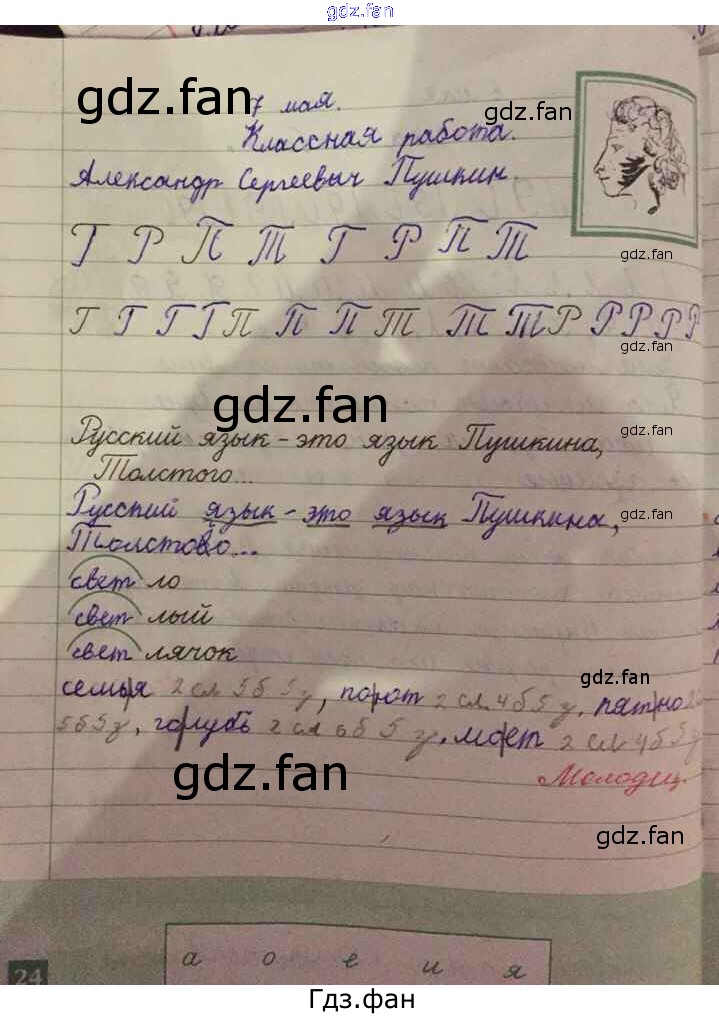 gdz.fan
gdz.fan
7 мая.
gdz.fan
Классная работа.
Александр Сергеевич Пушкин.
Г Р П Т Г Р П Т
gdz.fan
Г Г Г Г П П П Т Т Т Р Р Р Р Р
gdz.fan
gdz.fan
Русский язык - это язык Пушкина,
gdz.fan
Толстого...
Русский язык - это язык Пушкина,
gdz.fan
Толстово...
свет ло
свет лый
свет лячок
gdz.fan
семья 2 сл 5б 5з, 2 сл. 4б 5з, пятно 2
5б5з, голубь 2 сл 6б 5з, 2 сл 4б 5з
gdz.fan
Молодец.
gdz.fan
24
а о е и я
Гдз.фан